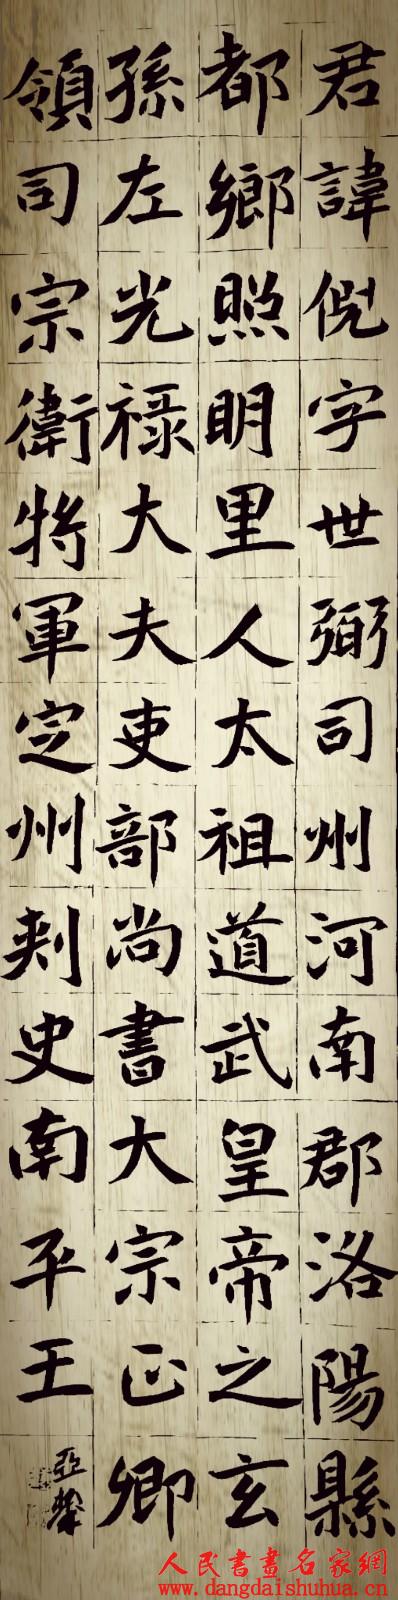 君諱倪字世弼司州河南郡洛陽縣
都鄉照明里人太祖道武皇帝之玄
孫左光祿大夫吏部尚書大宗正卿
領司宗衛將軍定州刺史南平王
人民書畫名家網
www.dangdaishuhua.cn